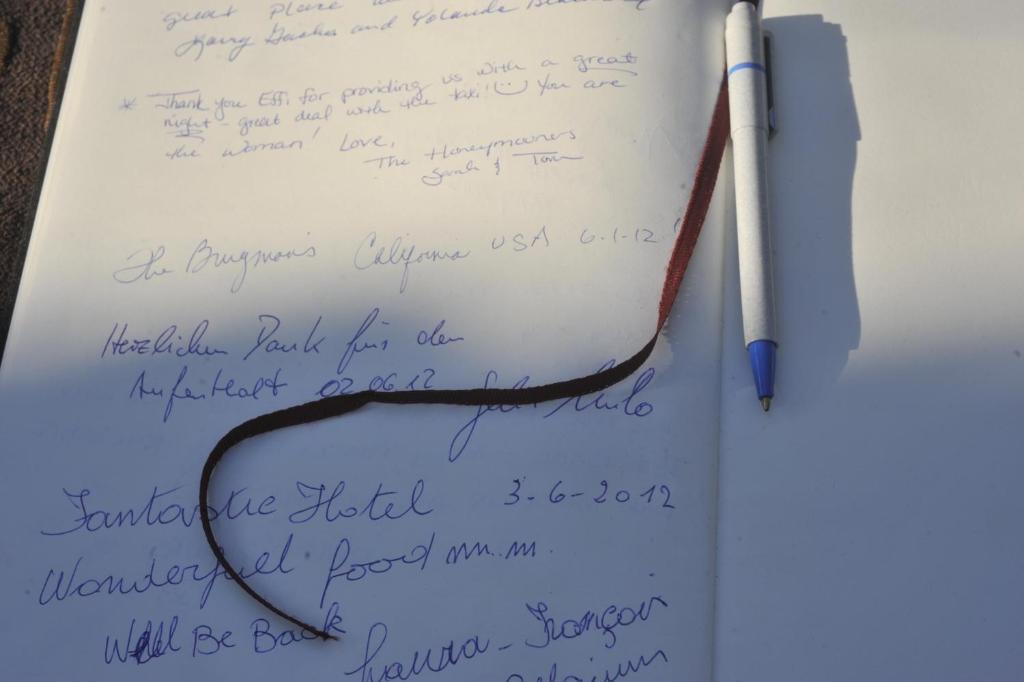 great place
Harry and Yolande
* Thank you Effi for providing us with a great
night - great deal with the taxi! You are
the woman! Love,
The Honeymooners
Sarah & Tom
The Brugman's California USA 6-1-12
Herzlichen Dank für den
Aufenthalt 02.06.12
Fantastic Hotel 3-6-2012
Wonderfuel food mm.m.
Will Be Back
François
Belgium